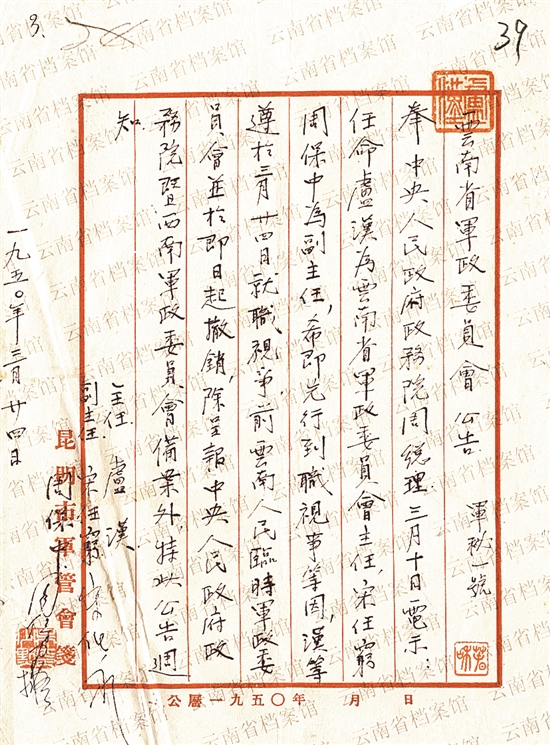 3.
39
雲南省軍政委員會 公告
軍秘一號
奉中央人民政府政務院周總理三月十日電示：
任命盧漢為雲南省軍政委員會主任，宋任窮
周保中為副主任，希即先行到職視事等因，漢等
遵於三月廿四日就職視事，前雲南人民臨時軍政委
員會並於即日起撤銷，除呈報中央人民政府政
務院暨西南軍政委員會備案外，特此公告週
知。
主任 盧漢
副主任 宋任窮
周保中
一九五〇年三月廿四日
昆明市軍管會箋
公曆一九五〇年 月 日
云南省档案馆